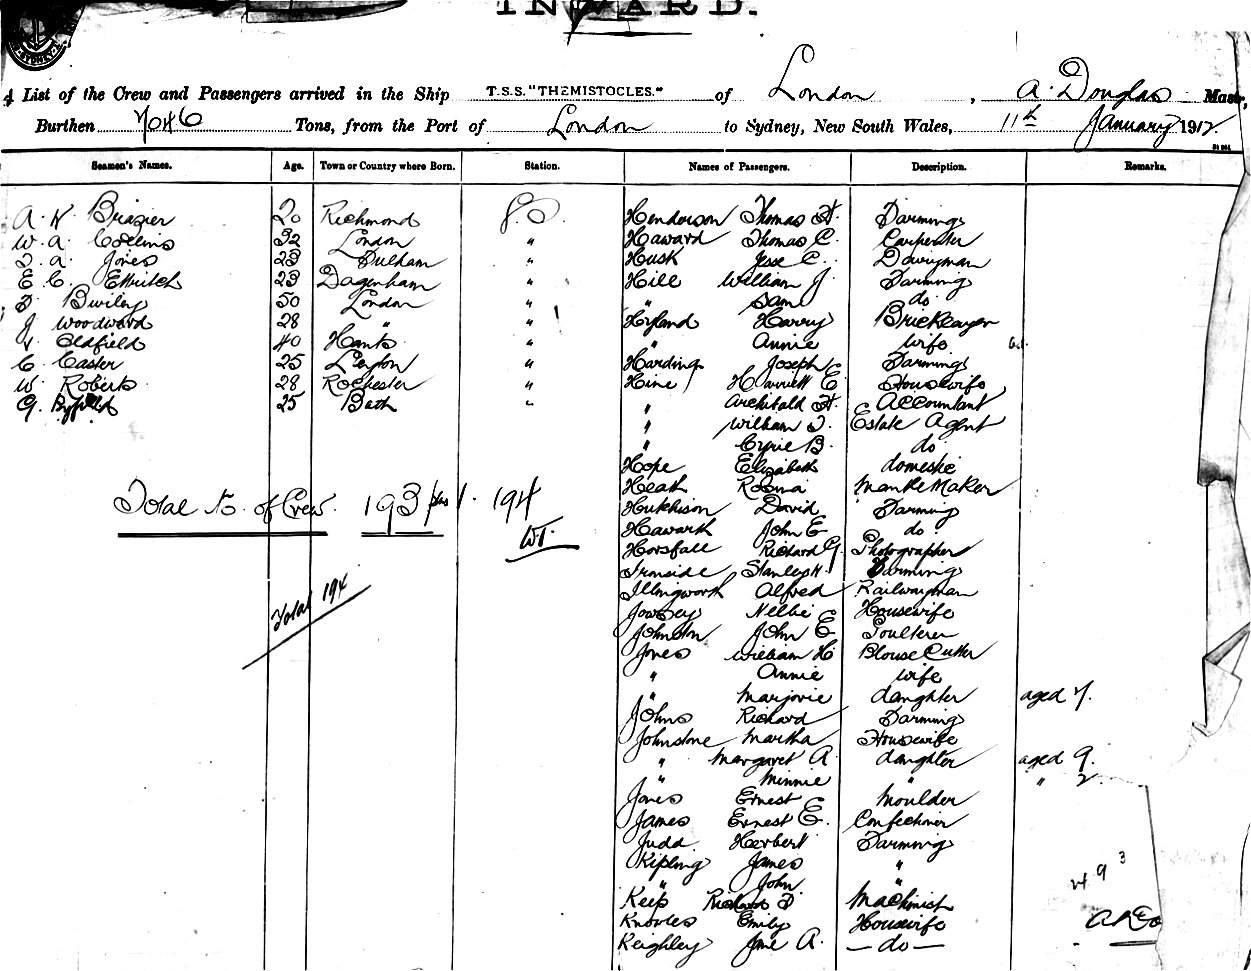 INWARD.
A List of the Crew and Passengers arrived in the Ship T.S.S. "THEMISTOCLES." of London, A. Douglas Master,
Burthen 7046 Tons, from the Port of London to Sydney, New South Wales, 11th January 1912.
Seamen's Names. Age. Town or Country where Born. Station. Names of Passengers. Description. Remarks.
A. V. Brazier 20 Richmond Henderson Thomas H. Farming
W. A. Collins 32 London " Haward Thomas C. Carpenter
F. A. Jones 23 Fulham " Husk Jesse C. Dairyman
E. C. 23 Dagenham " Hill William J. Farming
F. 50 London " " Sam do
J. Woodward 28 " " Hyland Harry Bricklayer
V. Oldfield 40 Hants " " Annie wife
C. Easter 25 Leyton " Harding Joseph Farming
W. Roberts 28 Rochester " Hine Harriett E Housewife
G. Byfield 25 Bath " " Archibald H. Accountant
" William F. Estate Agent
" Cyril B. do
Hope Elizabeth domestic
Heath Rosina Mantle Maker
Total No. of Crew. 193 plus 1. 194 Hutchison David Farming
Haworth John E do
Horsfall Richard G. Photographer
Ironside Stanley H. Farming
Total 194 Illingworth Alfred Railwayman
Jowsey Nellie Housewife
Johnston John E Poulterer
Jones William H Blouse Cutter
" Annie wife
" Marjorie daughter aged 7.
Johns Richard Farming
Johnstone Martha Housewife
" Margaret A daughter aged 9.
" Minnie " " 2
Jones Ernest Moulder
James Ernest E. Confectioner
Judd Herbert Farming
Kipling James "
" John "
Keip Richard F. Machinist
Knowles Emily Housewife
Keighley Jane A. — do —